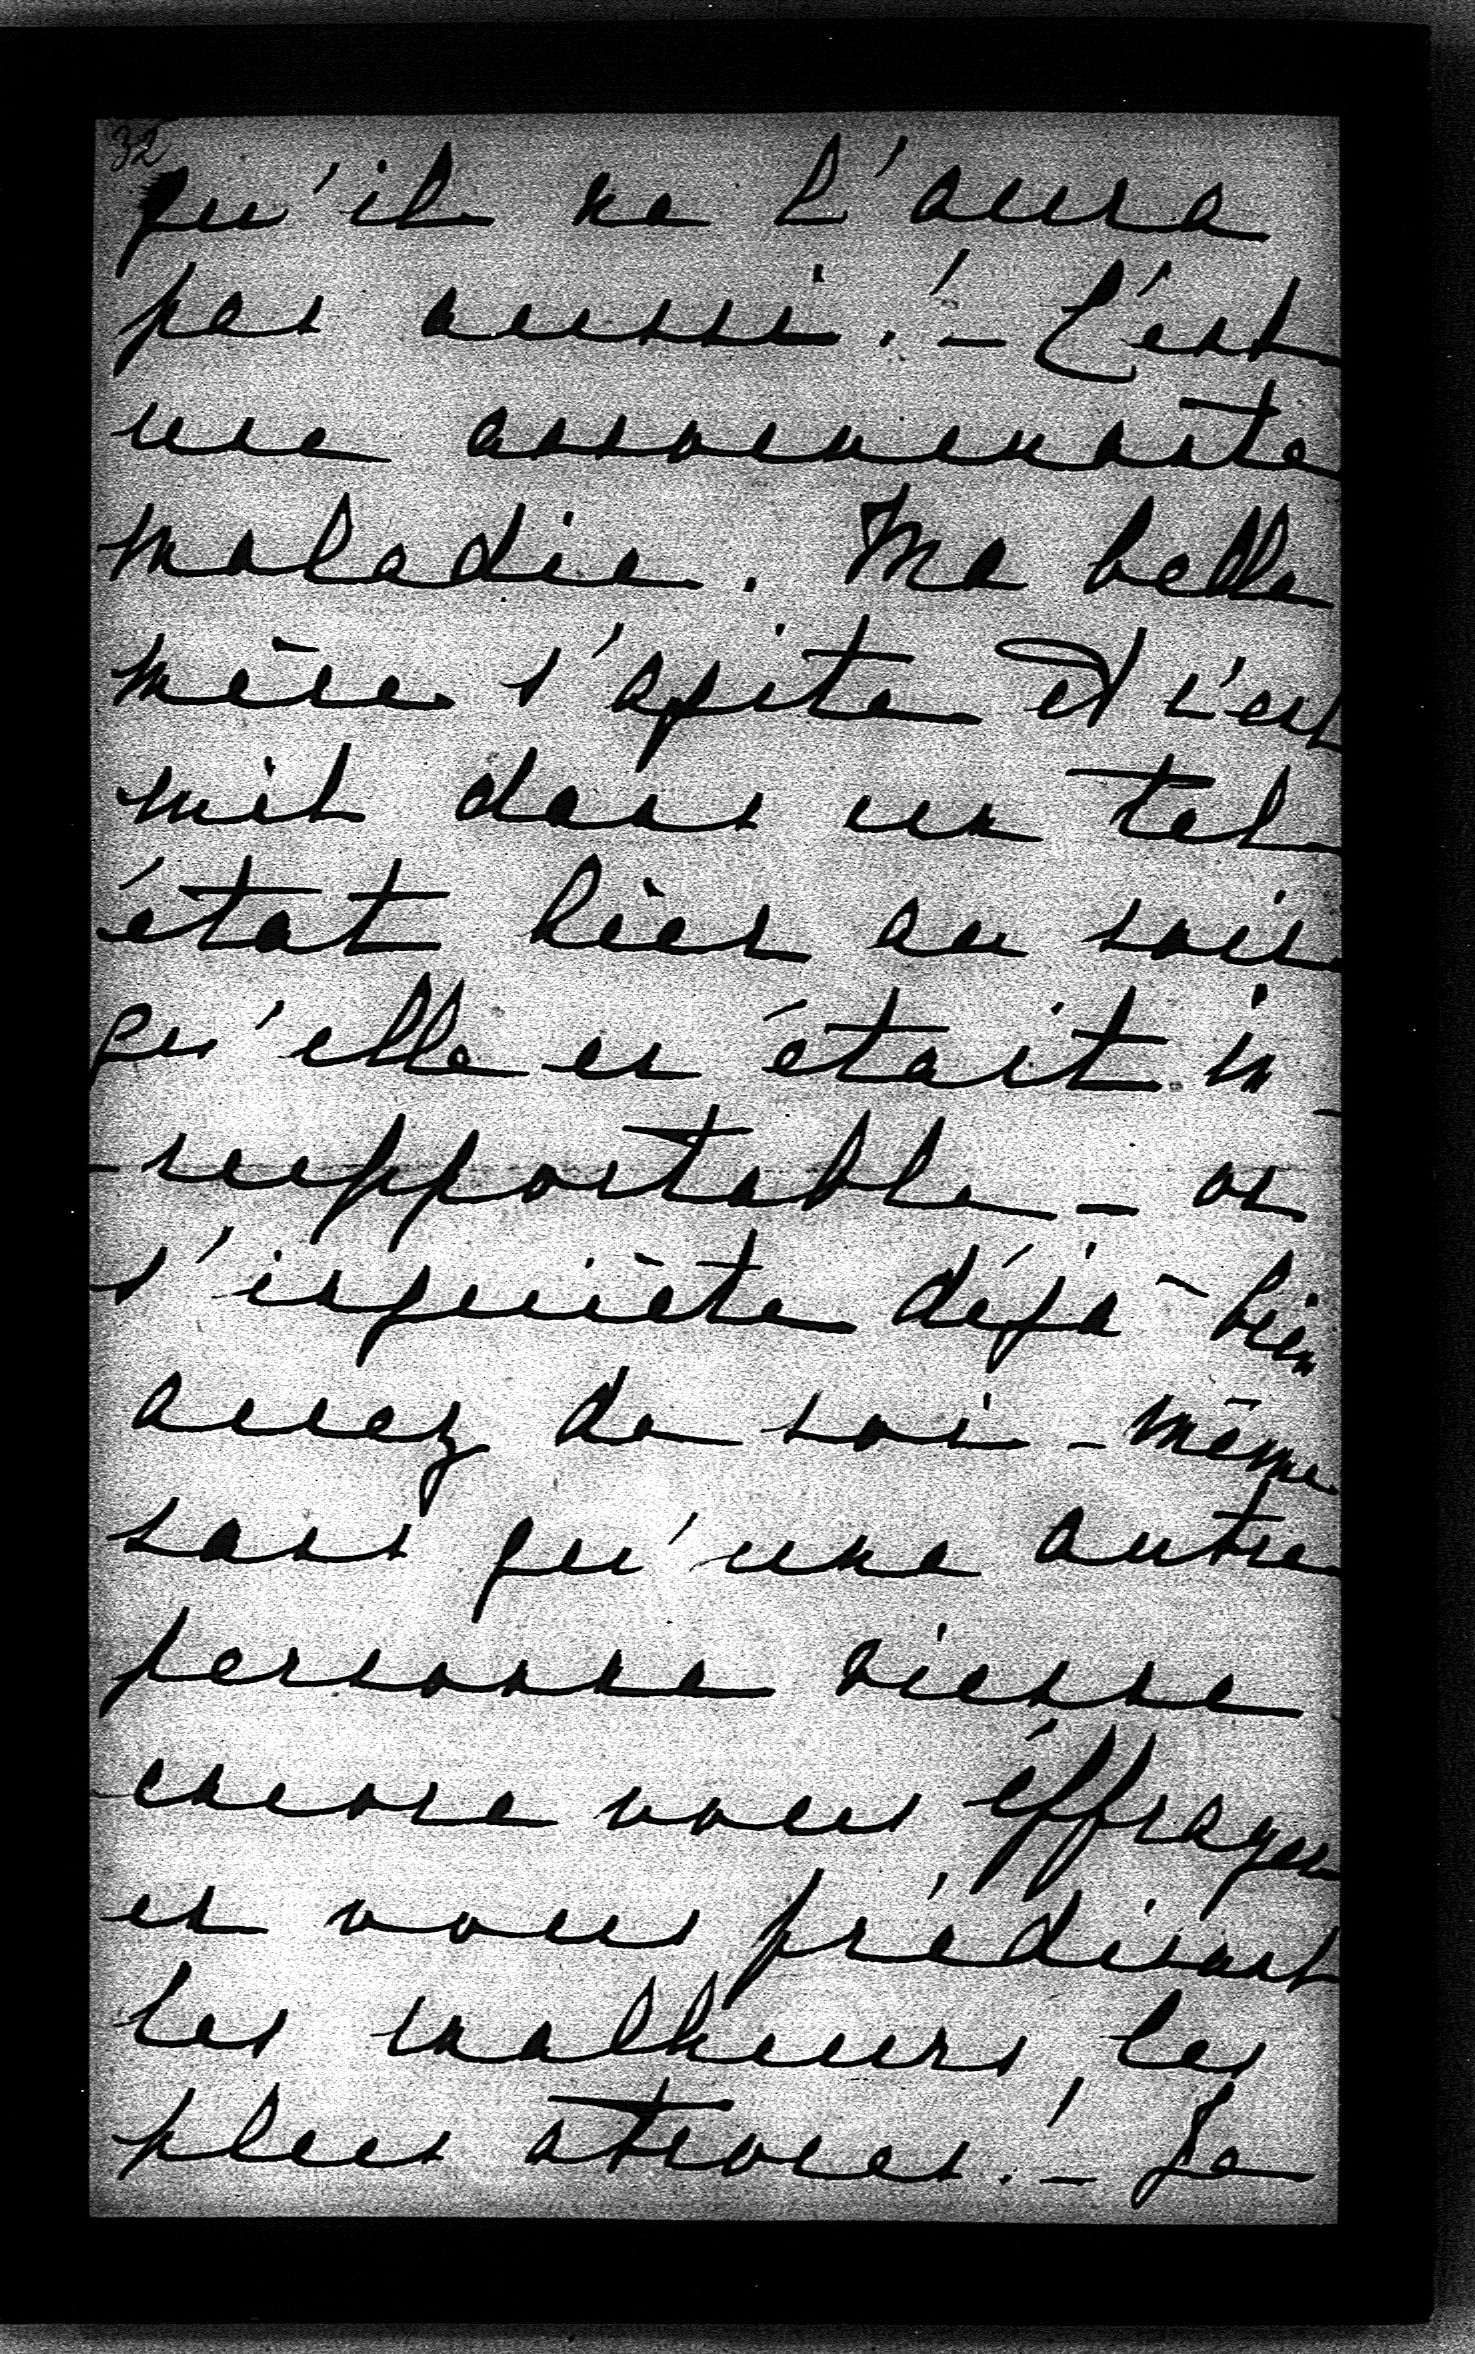 32
qu'il ne l'aura
pas aussi! - C'est
une assommante
maladie. Ma belle
mère s'agite et s'est
mit dans un tel
état hier au soir
qu'elle en était in-
-supportable - on
s'inquiète déjà bien
assez de soi-même
sans qu'une autre
personne vienne
encore vous éffrayer
en vous prédisant
les malheurs les
plus atroces! - Je